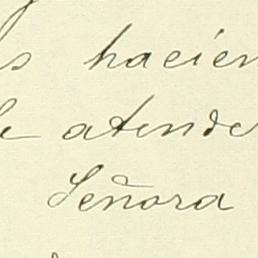 s hacien
le atende
Señora